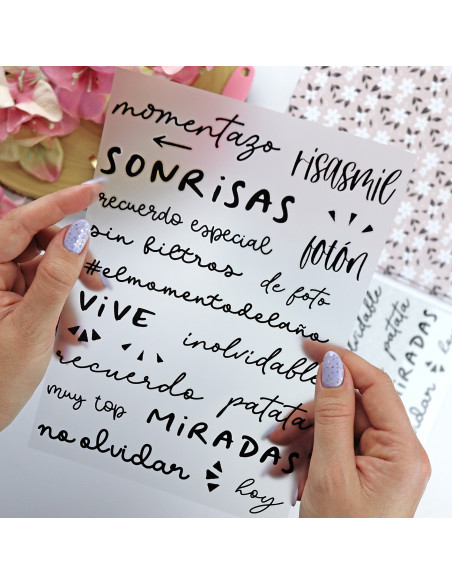 momentazo
risasmil
SONRISAS
recuerdo especial
fotón
sin filtros
de foto
#elmomentodelaño
VIVE
inolvidable
recuerdo patata
muy top
MIRADAS
no olvidar
hoy
patata
MIRADAS